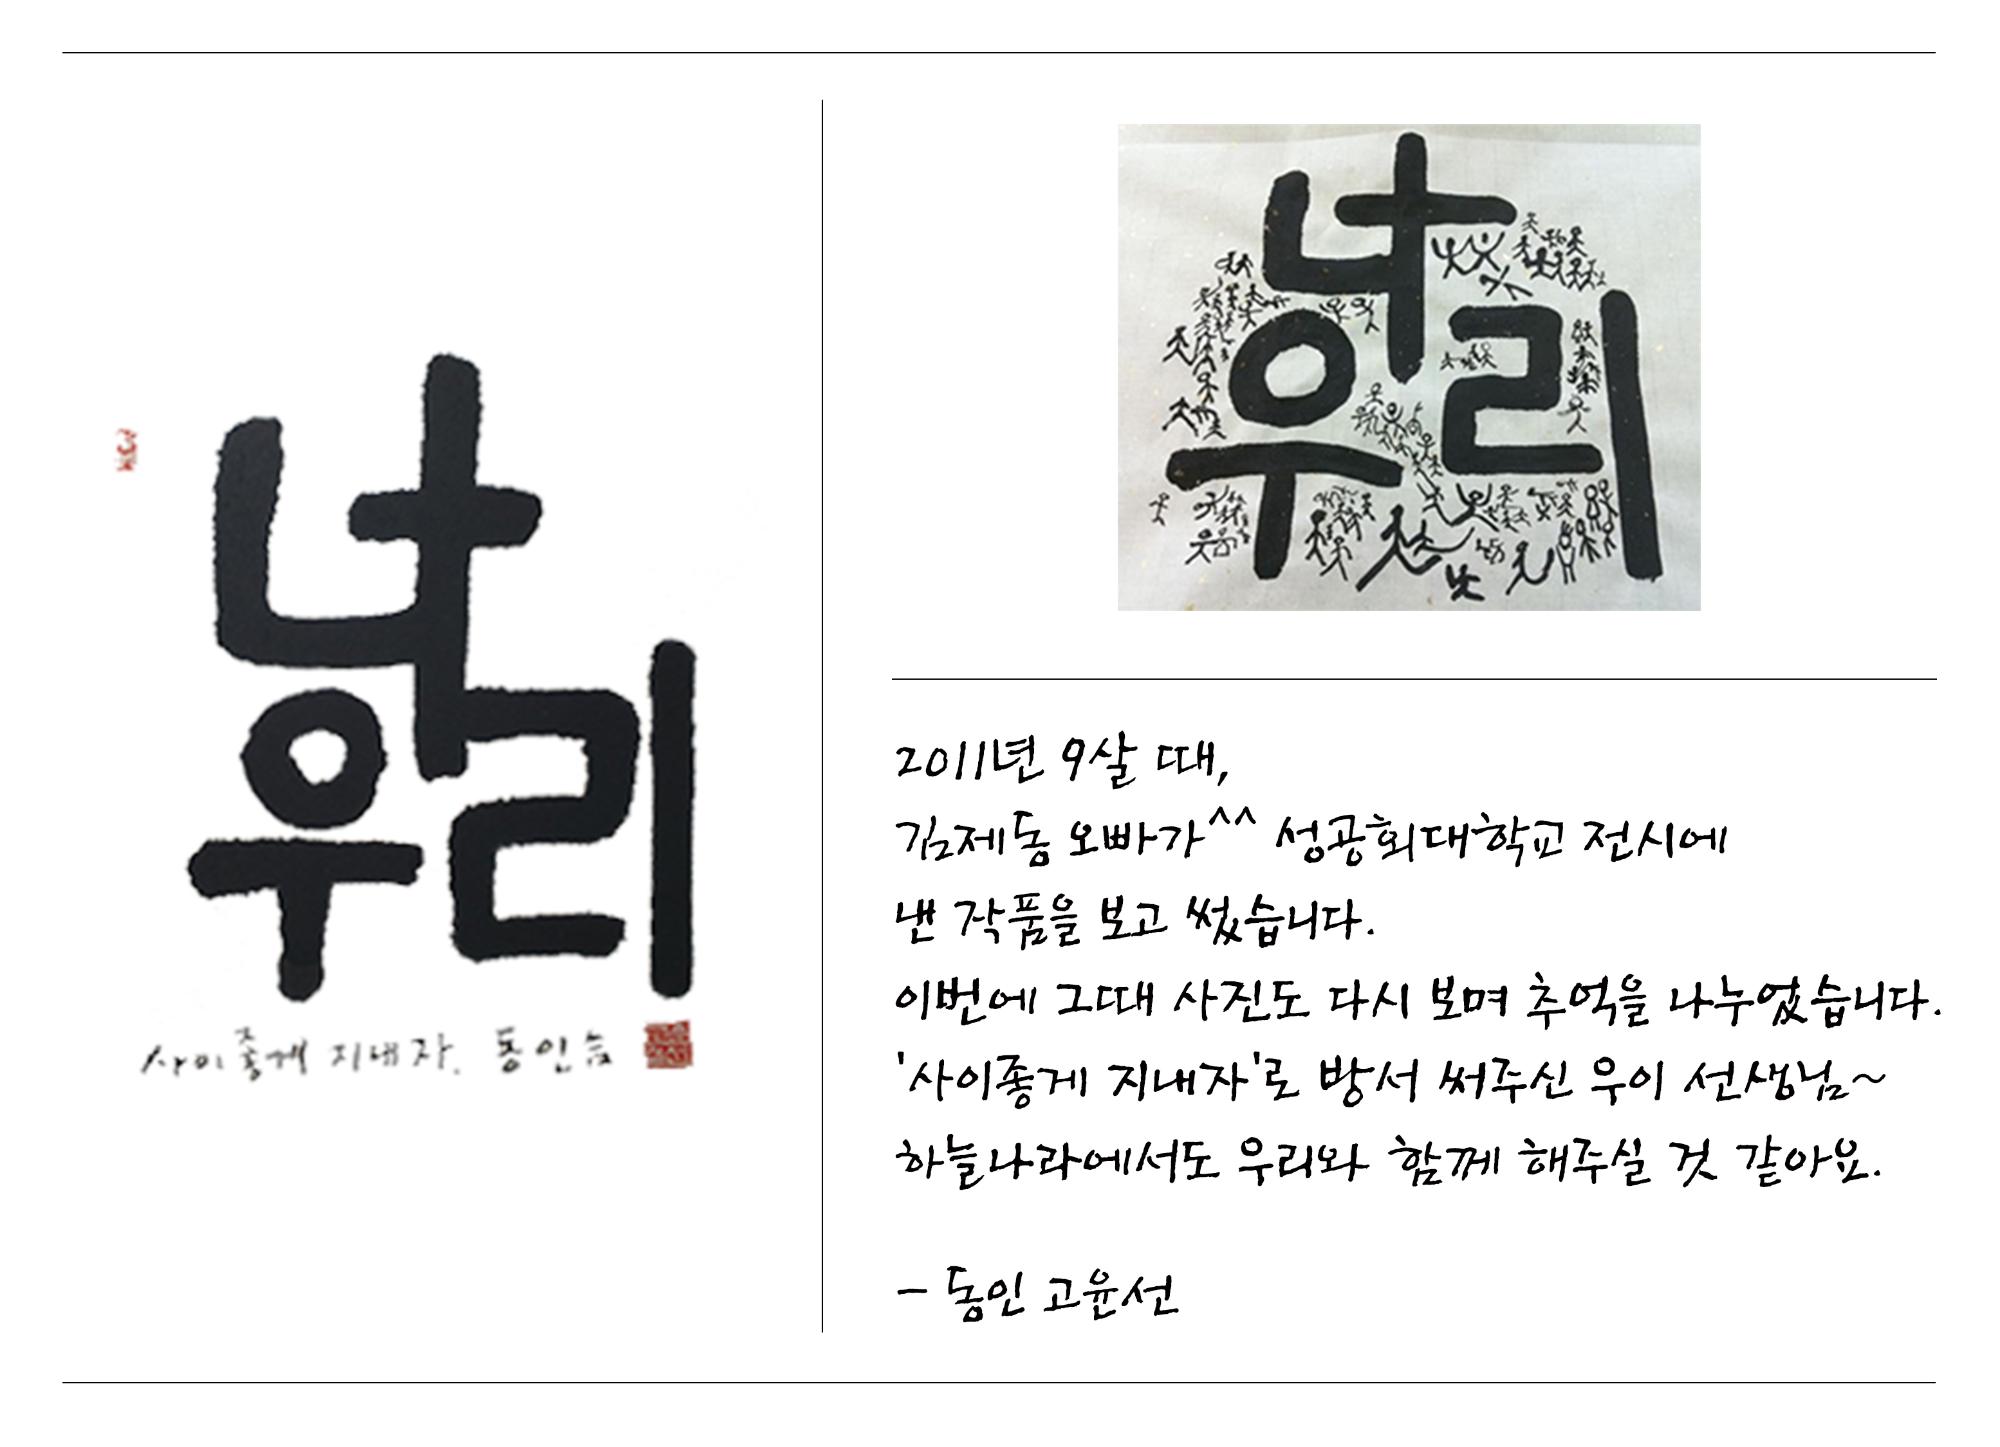 나
우리
사이좋게 지내자. 동인 씀
나
우리
2011년 9살 때,
김제동 오빠가^^ 성공회대학교 전시에
낸 작품을 보고 썼습니다.
이번에 그때 사진도 다시 보며 추억을 나누었습니다.
'사이좋게 지내자'로 방서 써주신 우이 선생님~
하늘나라에서도 우리와 함께 해주실 것 같아요.
- 동인 고윤선